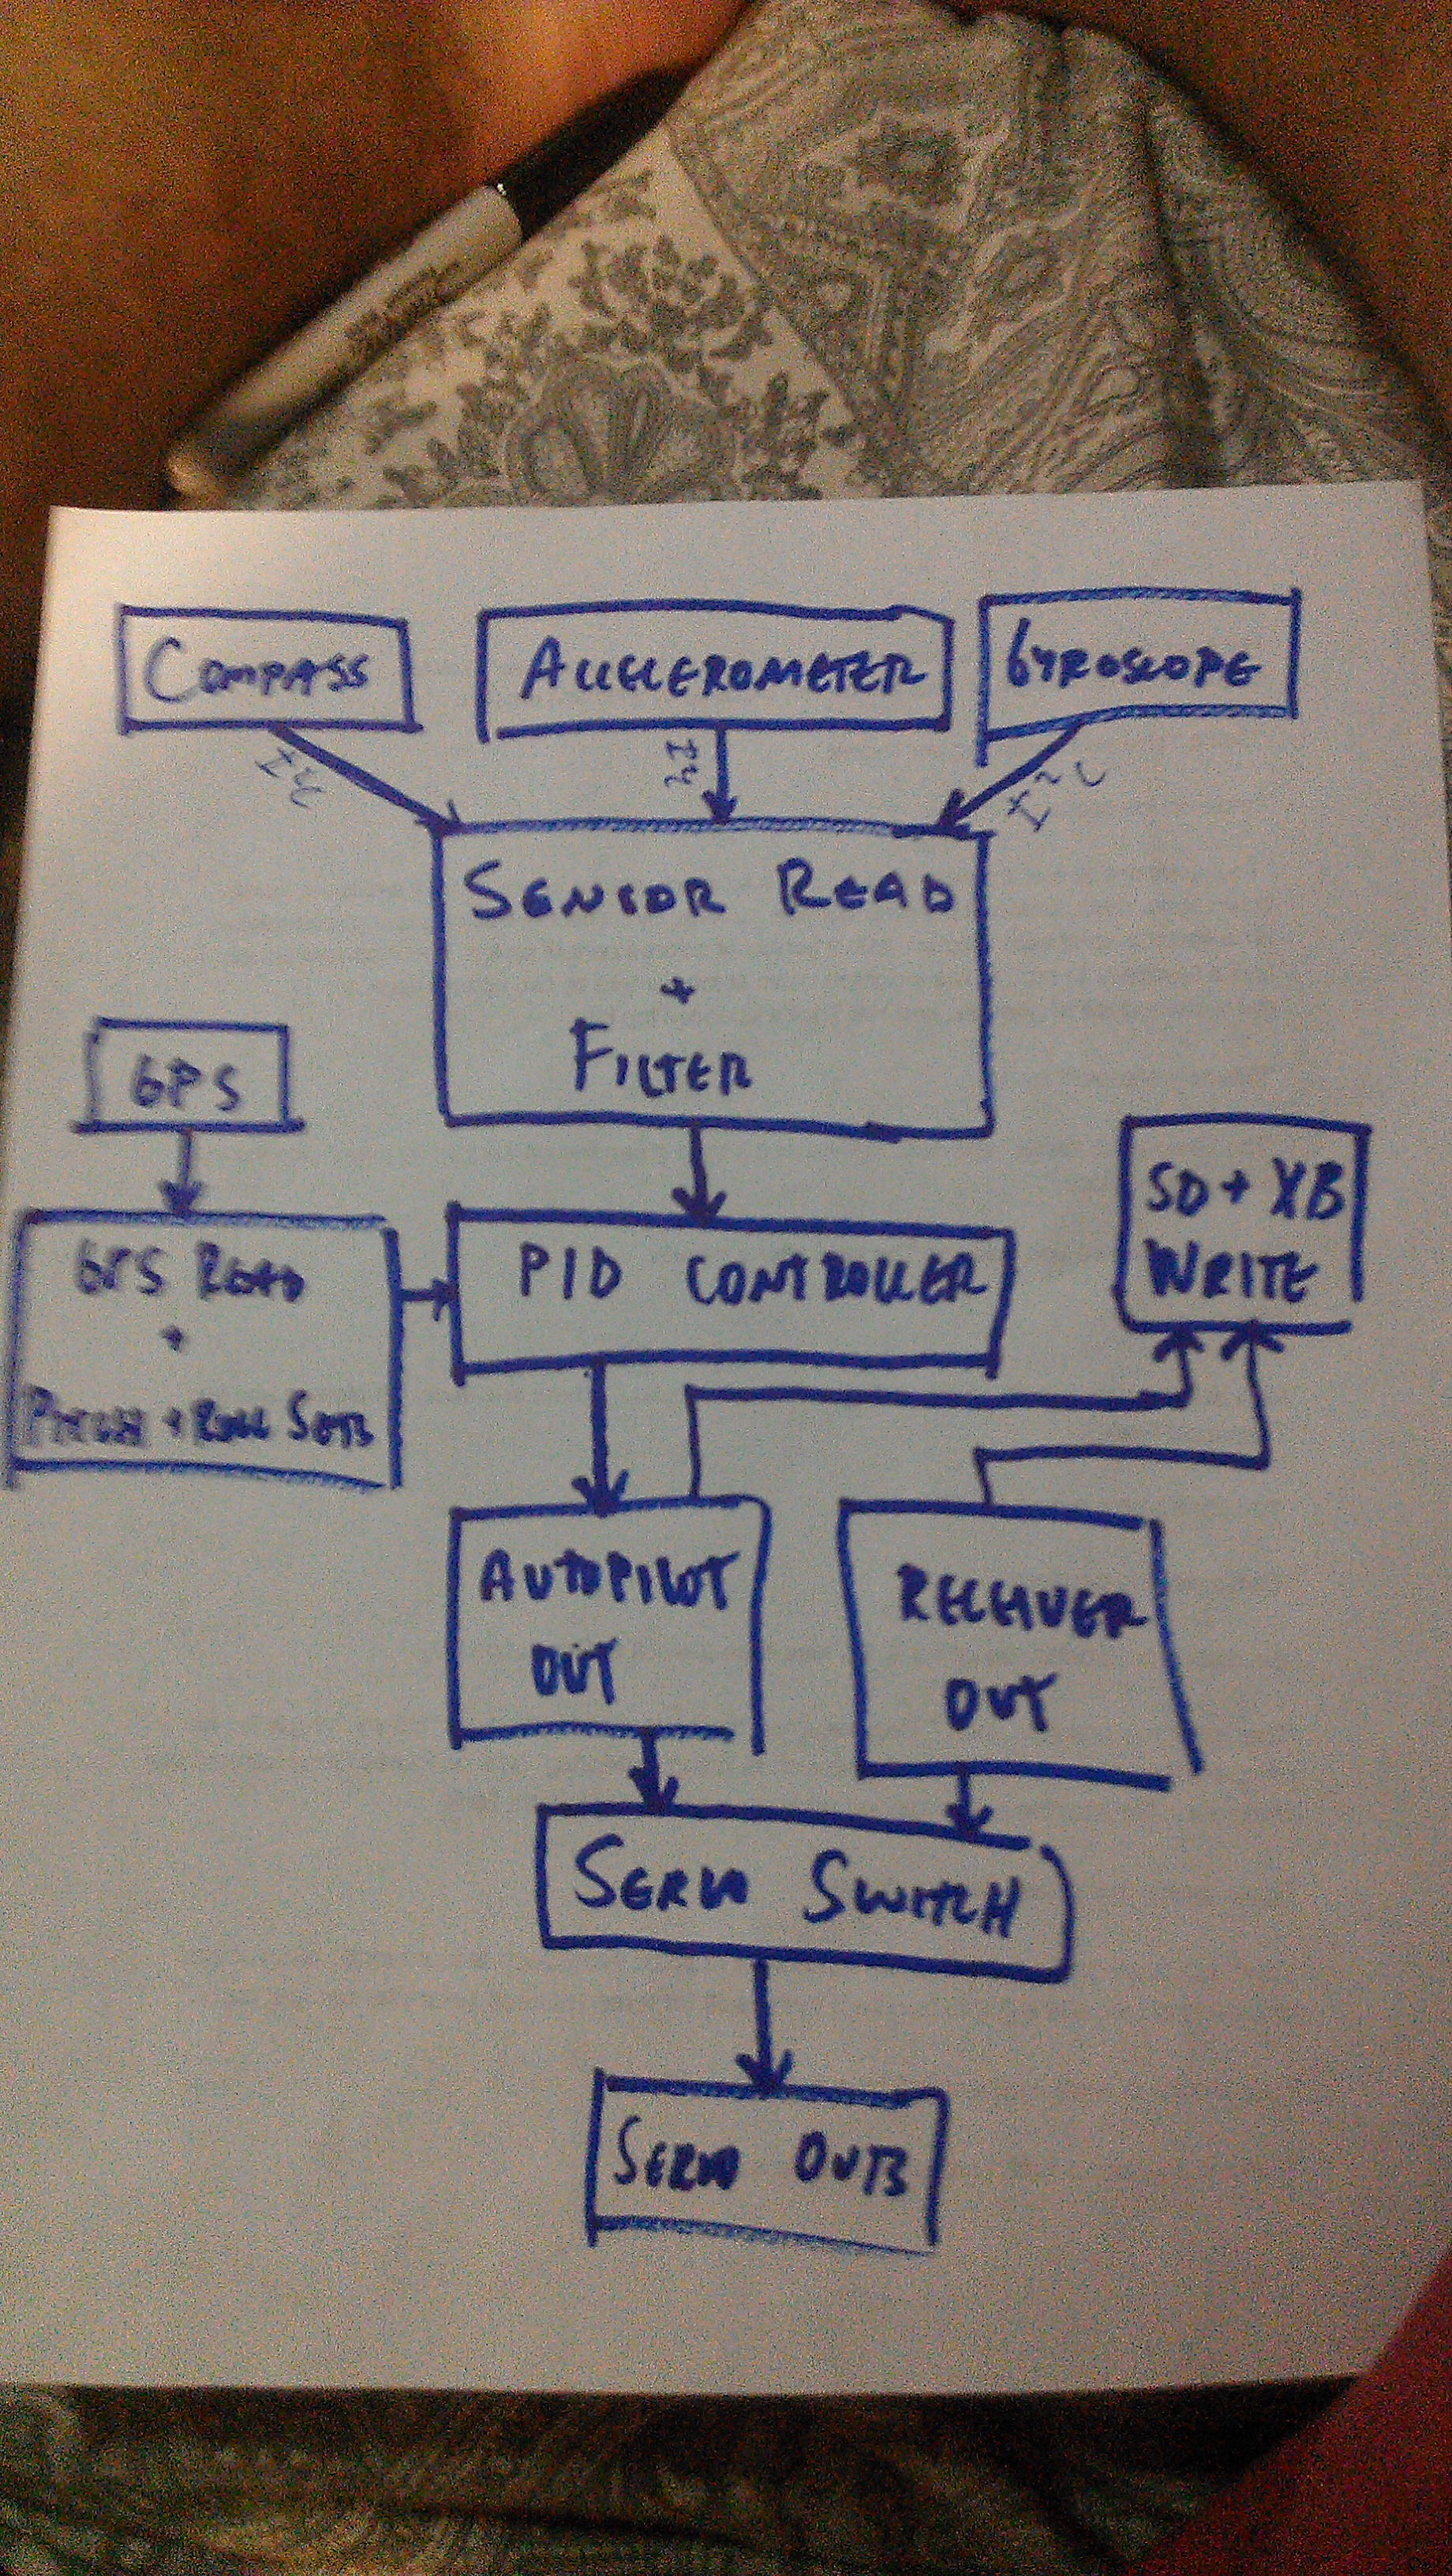 COMPASS
ACCELEROMETER
GYROSCOPE
I²C
I²C
I²C
SENSOR READ
+
FILTER
GPS
SD + XB
WRITE
GPS READ
+
PITCH + ROLL SETS
PID CONTROLLER
AUTOPILOT
OUT
RECEIVER
OUT
SERVO SWITCH
SERVO OUTS